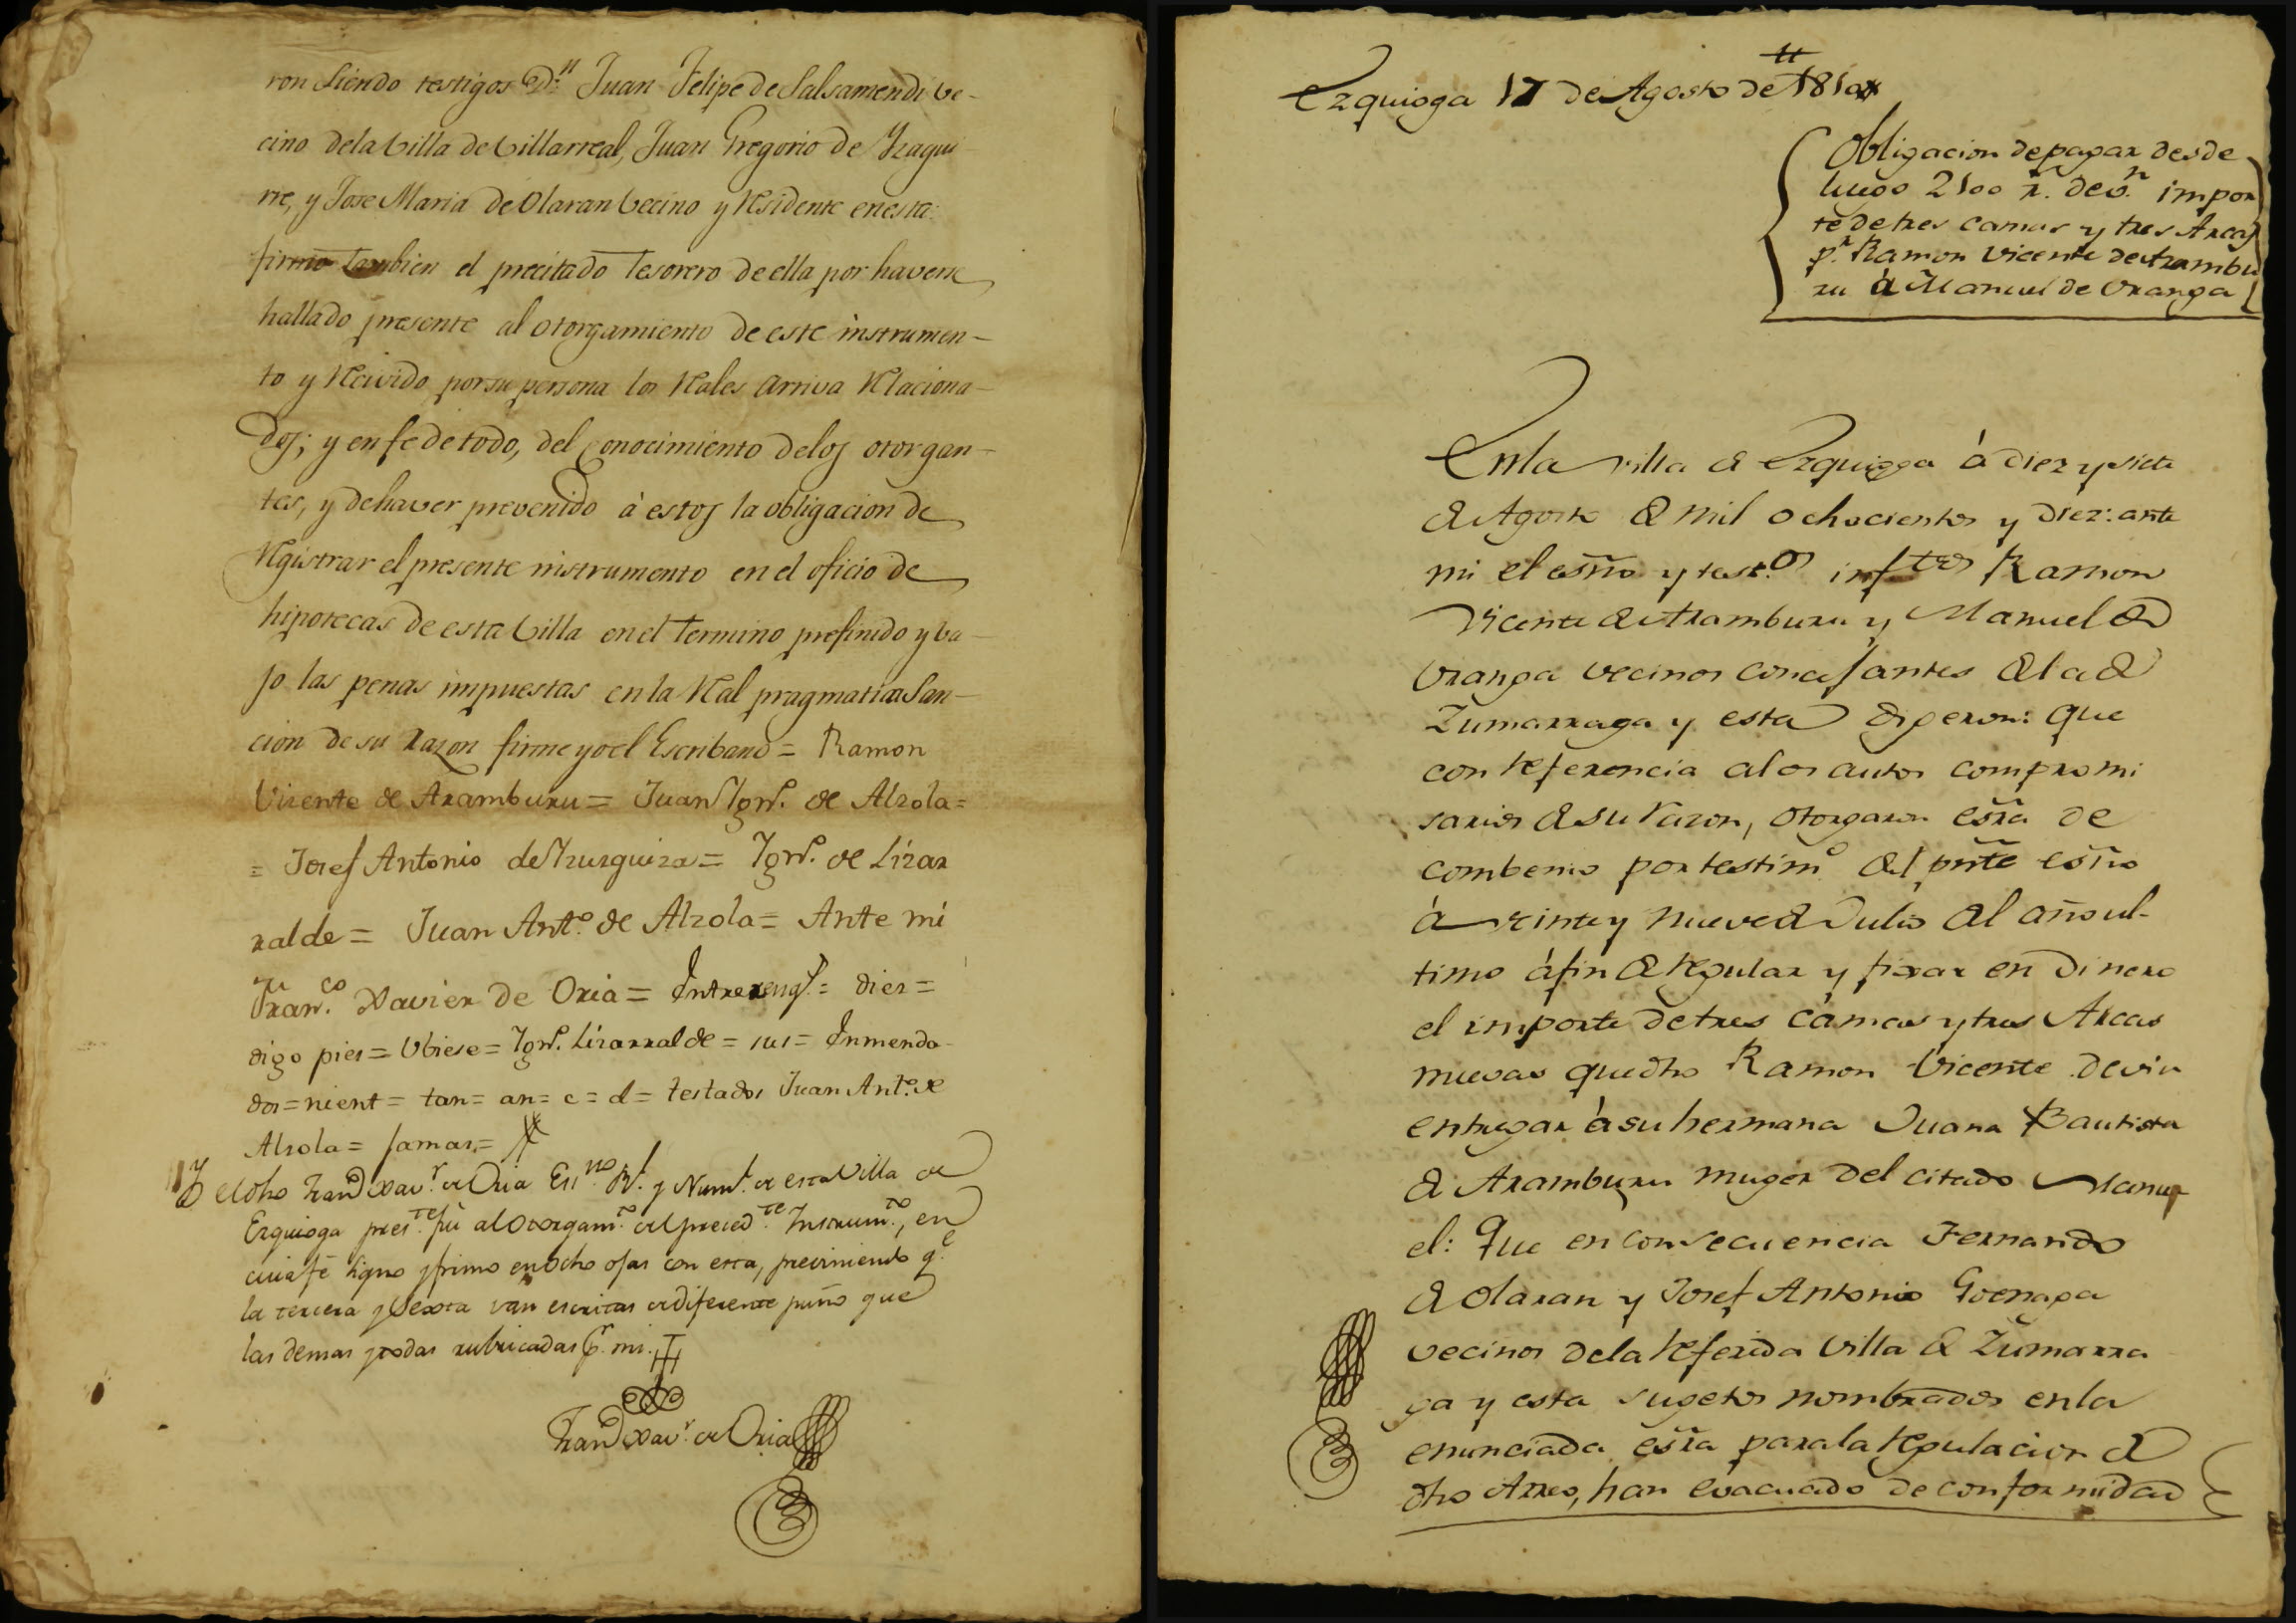 ron siendo testigos Dn. Juan Felipe de Salsamendi ve-
cino dela Villa de Villarreal, Juan Gregorio de Yzagui-
rre, y Jose Maria de Olaran Vecino y Residente en esta:
firmó tambien el precitado Tesorero de ella por haverse
hallado presente al otorgamiento de este instrumen-
to y Recivido por su persona los Reales arriva Relaciona-
dos; y en fe de todo, del conocimiento delos otorgan-
tes, y de haver prevenido à estos la obligacion de
Registrar el presente instrumento en el oficio de
hipotecas de esta Villa en el Termino prefinido y ba-
jo las penas impuestas en la Real pragmatica San-
cion de su razon firme yo el Escribano = Ramon
Vizente de Aramburu = Juan Ygno. de Alzola =
= Josef Antonio de Yrurguiza = Ygno. de Lizar
ralde = Juan Anto. de Alzola = Ante mi
Franco. Xavier de Oria = Entrereng.s = diez =
digo pies = Ubiese = Ygno. Lizarralde = sus = Enmenda-
dos = nient = tan = an = c = d = testados Juan Anto. de
Alzola = famas =
Yo el dho Franco Xavr. de Oria Essno. Rl. y Numl. de esta Villa de
Ezquioga preste. fui al Otorgamto. del precedte. Instrumto., en
cuia fé signo y firmo en ocho ojas con esta, previniendo qe.
la tercera y Sexta van escritas de diferente puño que
las demas y todas rubricadas pr. mi.
Franco Xavr. de Oria
Ezquioga 17 de Agosto de 1810
Obligacion de pagar desde
luego 2100 rs. de vn. impor
te de tres camas y tres Arcas
pr. Ramon Vicente de Arambu
ru á Manuel de Uranga
En la villa de Ezquioga á diez y siete
de Agosto de mil ochocientos y diez: ante
mi el esño. y testos. inftos Ramon
Vicente de Aramburu y Manuel de
Uranga vecinos concejantes de la de
Zumarraga y esta digeron: que
con referencia alos autos compromi
sarios de su razon, otorgaron esra de
combenio por testimo. del prnte esño
á veinte y nueve de Julio del año ul-
timo á fin de regular y fixar en dinero
el importe de tres camas y tres Arcas
nuevas que dho Ramon Vicente devia
entregar á su hermana Juana Bautista
de Aramburu muger del citado Manu
el: Que en consecuencia Fernando
de Olaran y Josef Antonio Goenaga
vecinos dela referida Villa de Zumarra
ga y esta sugetos nombrados en la
enunciada esra para la regulacion de
dho Arreo, han evacuado de conformidad